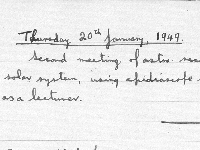 Thursday 20th January, 1949.
Second meeting of astro.
solar system, using epidiascope
as a lecturer.